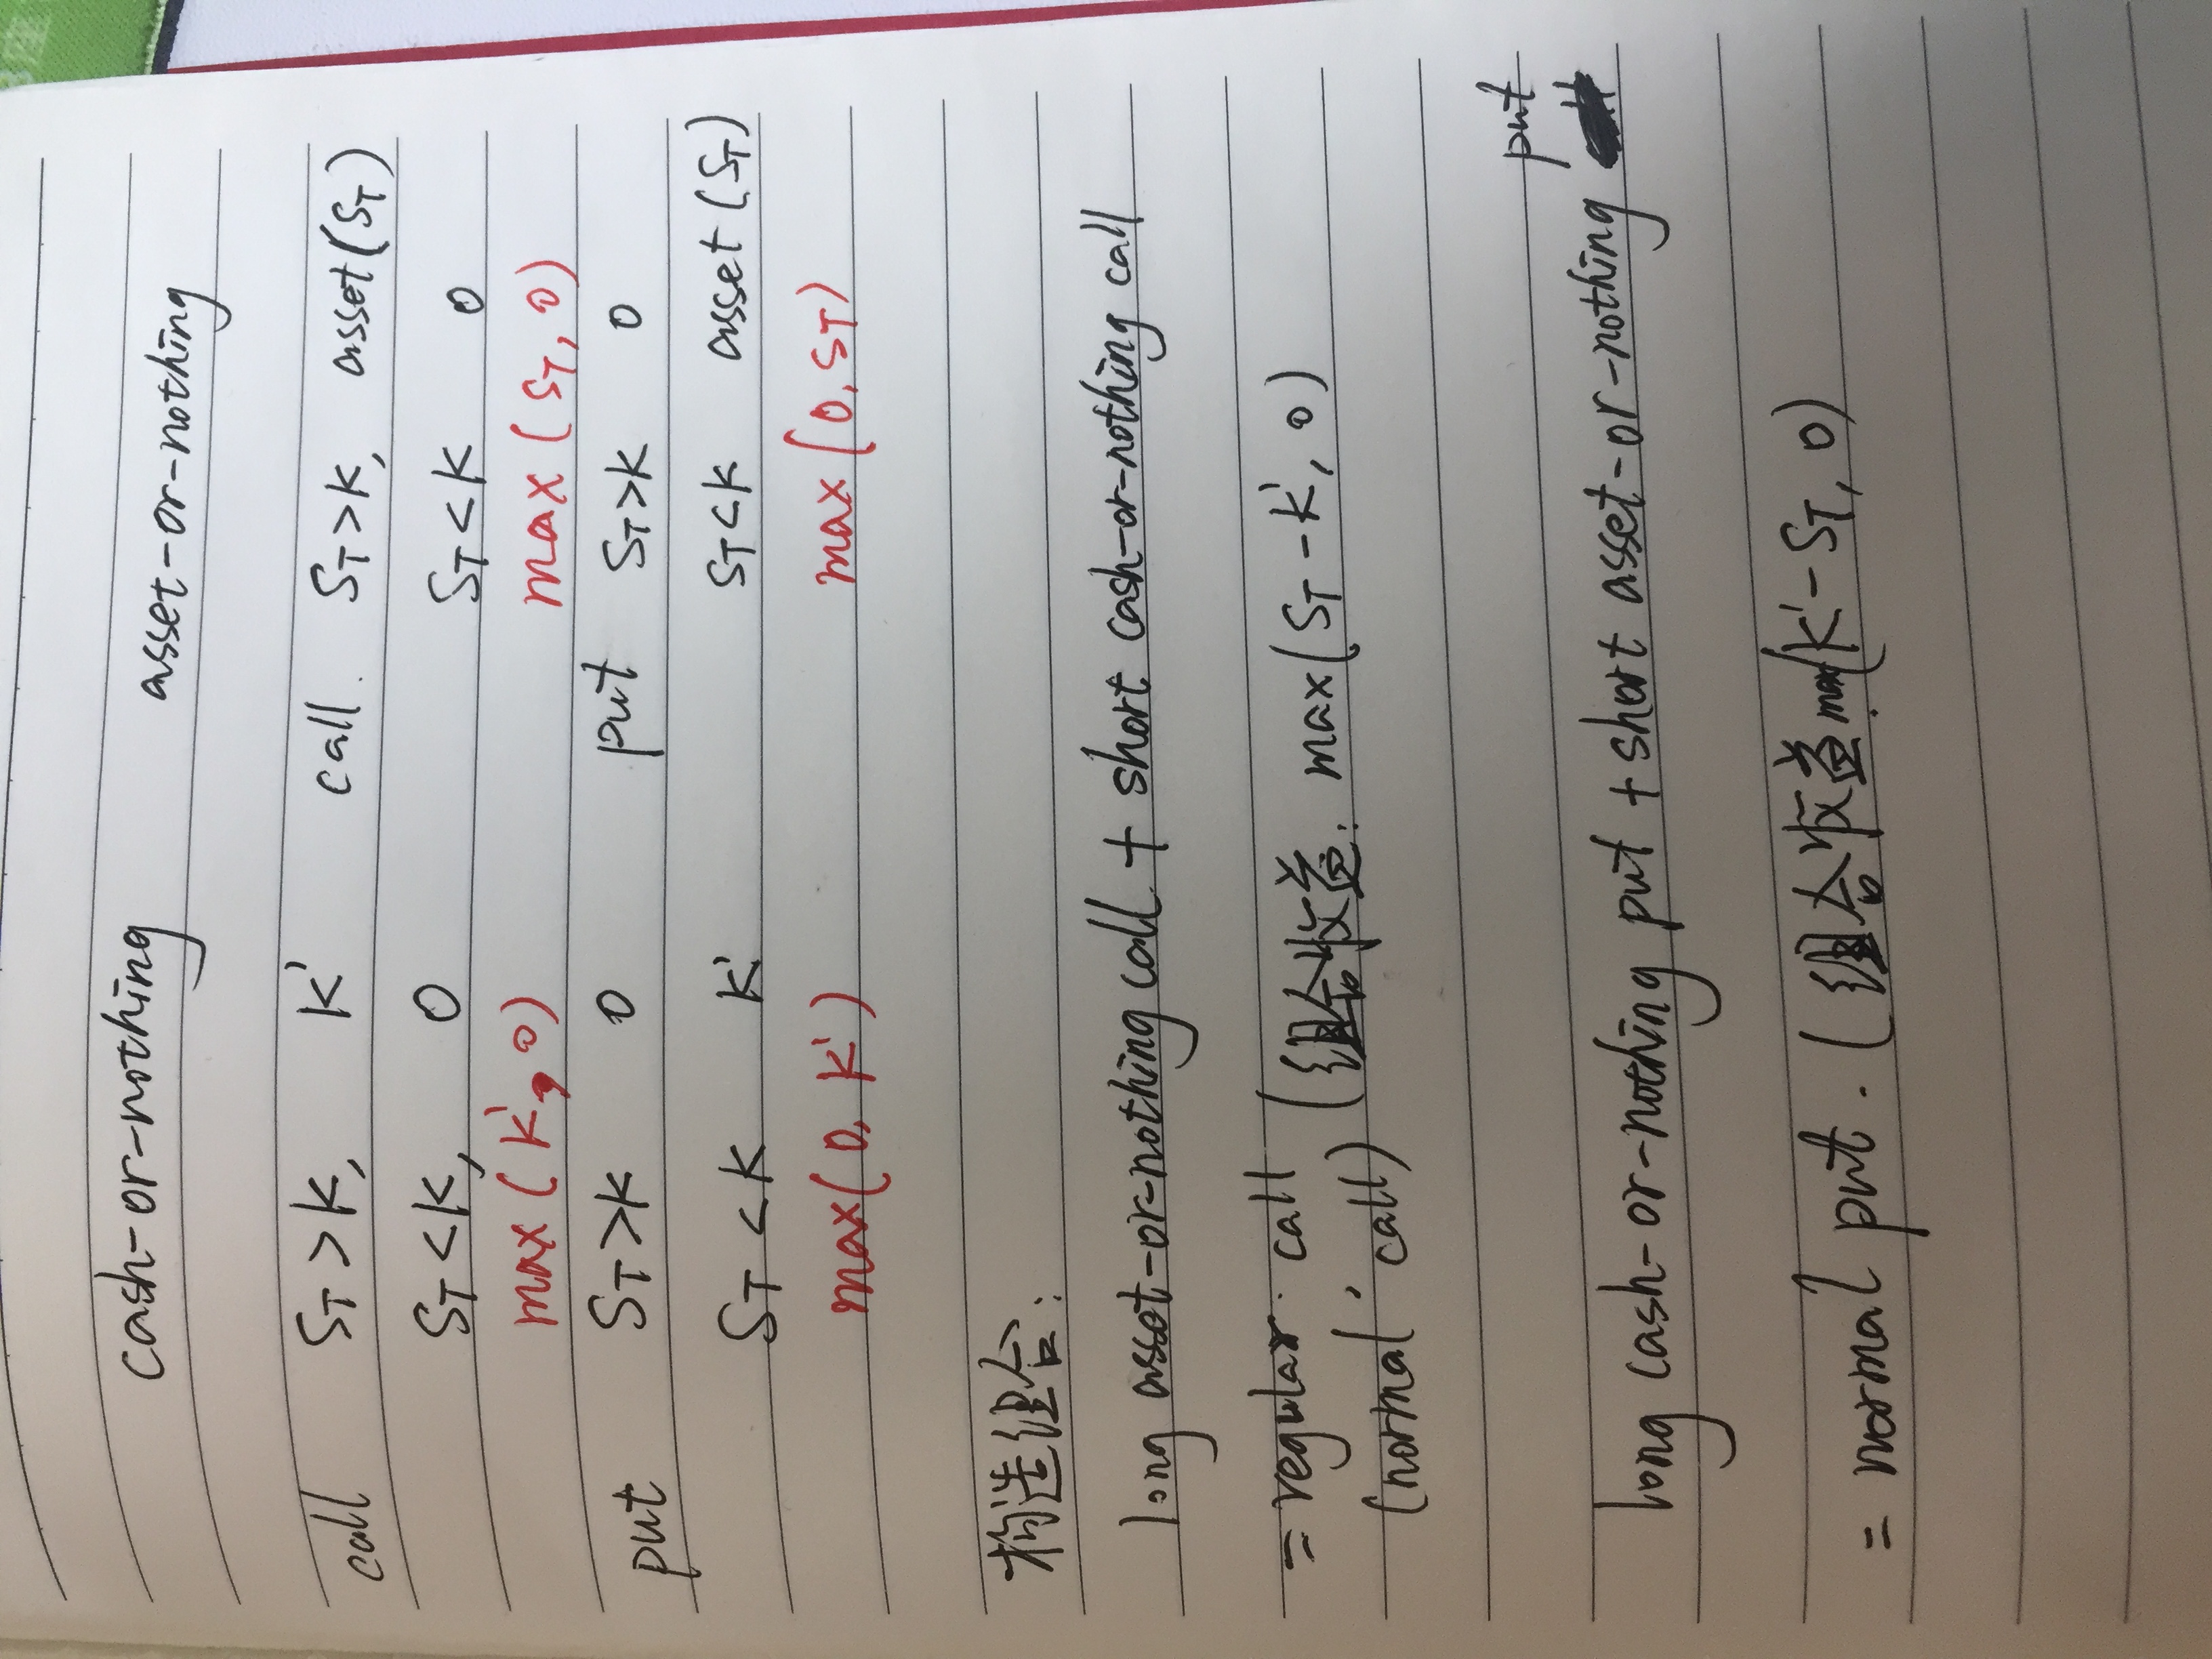 cash-or-nothing asset-or-nothing
call ST>K, K' call. ST>K, asset(ST)
ST<K, 0 ST<K 0
max(K', 0) max(ST, 0)
put ST>K 0 put ST>K 0
ST<K K' ST<K asset(ST)
max(0, K') max(0, ST)
构造组合:
long asset-or-nothing call + short cash-or-nothing call
= regular call (组合收益: max(ST-K', 0)
(normal, call)
long cash-or-nothing put + short asset-or-nothing put
= normal put. (组合收益: max(K'-ST, 0)